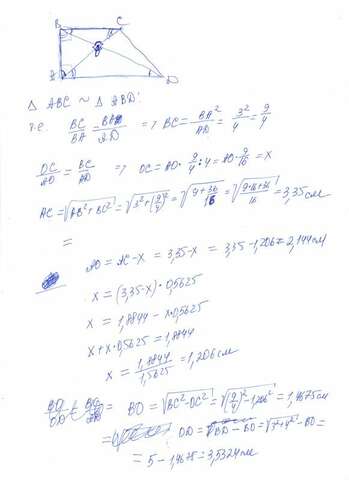 B C
A D
Δ ABC ~ Δ ABD:
т.е. BC/BA = BA/AD => BC = BA²/AD = 3²/4 = 9/4
OC/AO = BC/AD => OC = AO · 9/4 : 4 = AO · 9/16 = x
AC = √(AB² + BC²) = √(3² + (9/4)²) = 3,35 см
=
AO = AC - x = 3,35 - x = 3,35 - 1,206 = 2,144 см
x = (3,35 - x) · 0,5625
x = 1,8844 - x · 0,5625
x + x · 0,5625 = 1,8844
x = 1,8844/1,5625 = 1,206 см
BO = √(BC² - OC²) = √((9/4)² - 1,206²) = 1,4675 см
OD = BD - BO = √(3² + 4²) - BO =
= 5 - 1,4675 = 3,5324 см